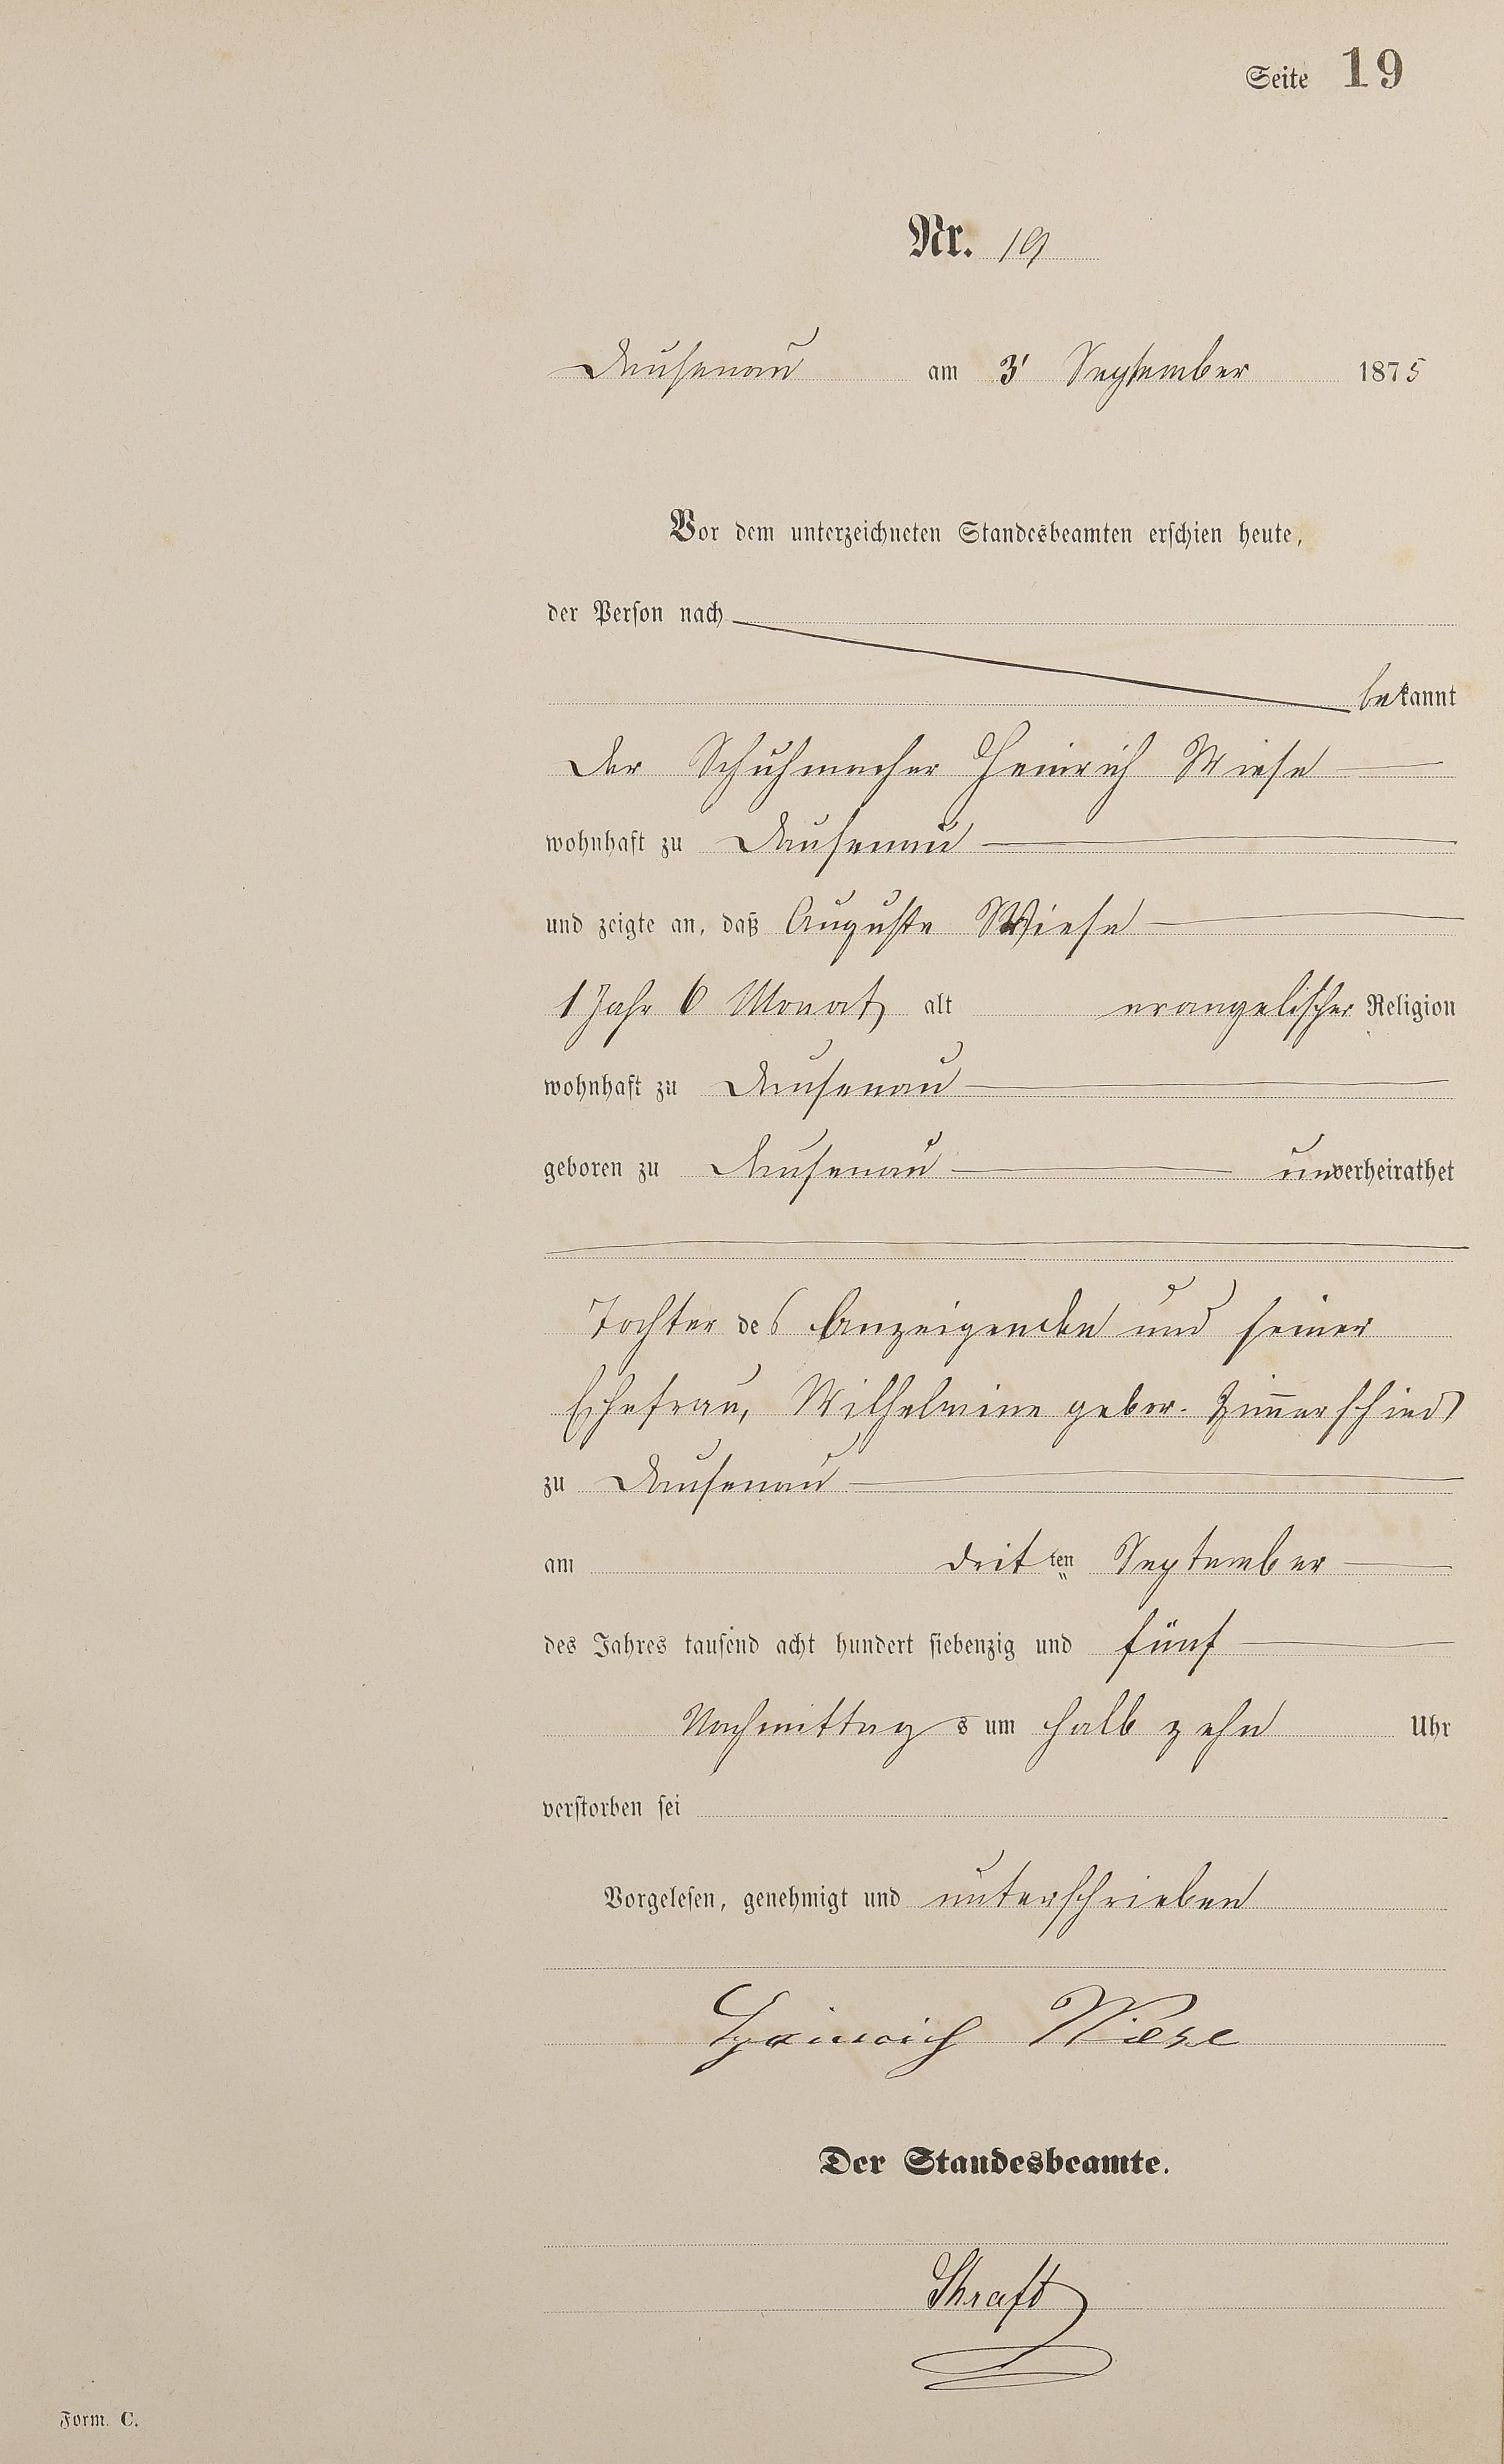 Seite 19
Nr. 19
Dausenau am 3' September 1875
Vor dem unterzeichneten Standesbeamten erschien heute,
der Person nach
bekannt
der Schuhmacher Heinrich Wiese
wohnhaft zu Dausenau
und zeigte an, daß Auguste Wiese
1 Jahr 6 Monat alt evangelischer Religion
wohnhaft zu Dausenau
geboren zu Dausenau unverheirathet
Tochter des Anzeigenden und seiner
Ehefrau, Wilhelmine gebor. Zim̄erschied
zu Dausenau
am dritten September
des Jahres tausend acht hundert siebenzig und fünf
Nachmittags um halb zehn Uhr
verstorben sei
Vorgelesen, genehmigt und unterschrieben
Heinrich Wiese
Der Standesbeamte.
Form. C.